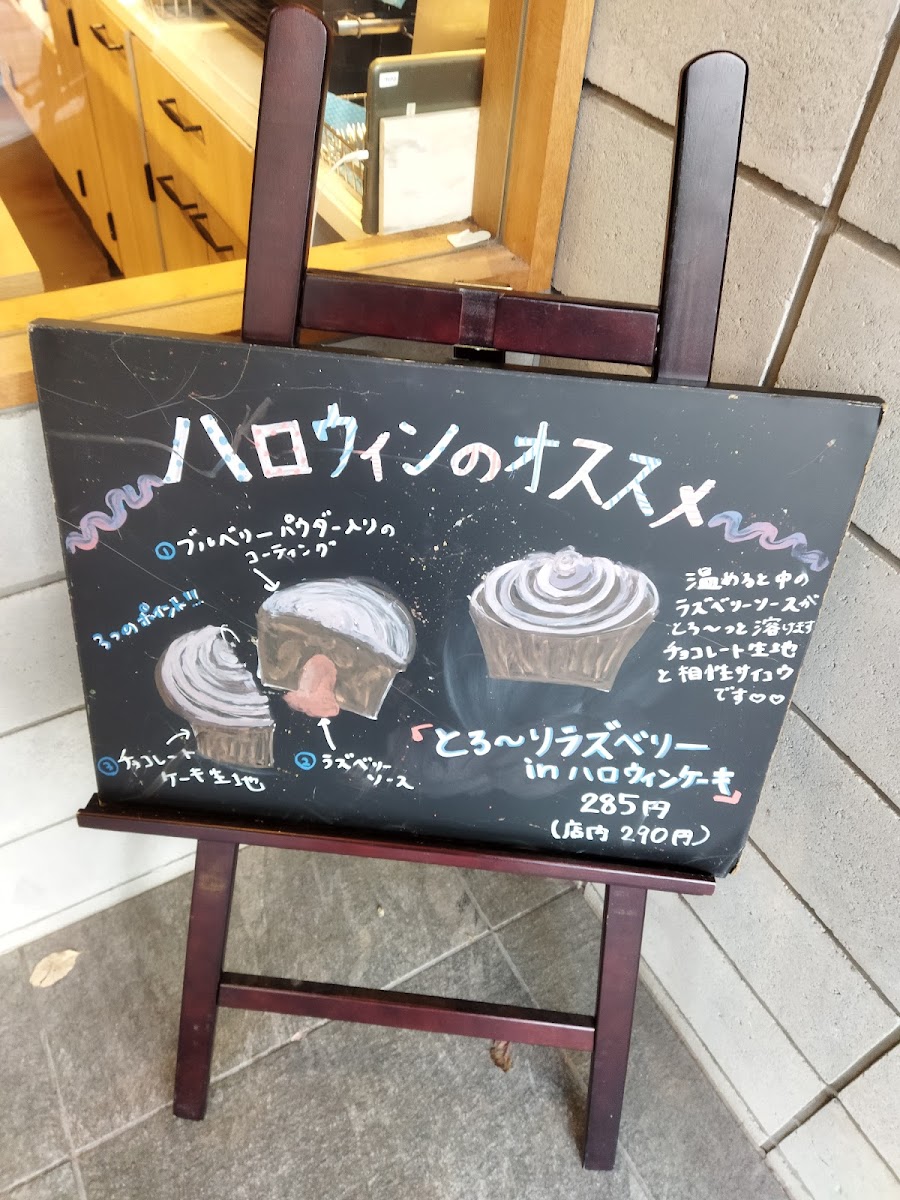 ハロウィンのオススメ
①ブルベリーパウダー入りの
コーティング
3つのポイント!!!
②ラズベリー
ソース
③チョコレート
ケーキ生地
温めると中の
ラズベリーソースが
とろ〜っと溶けます
チョコレート生地
と相性サイコウ
です♡♡
『とろ〜りラズベリー
inハロウィンケーキ』
285円
(店内 290円)